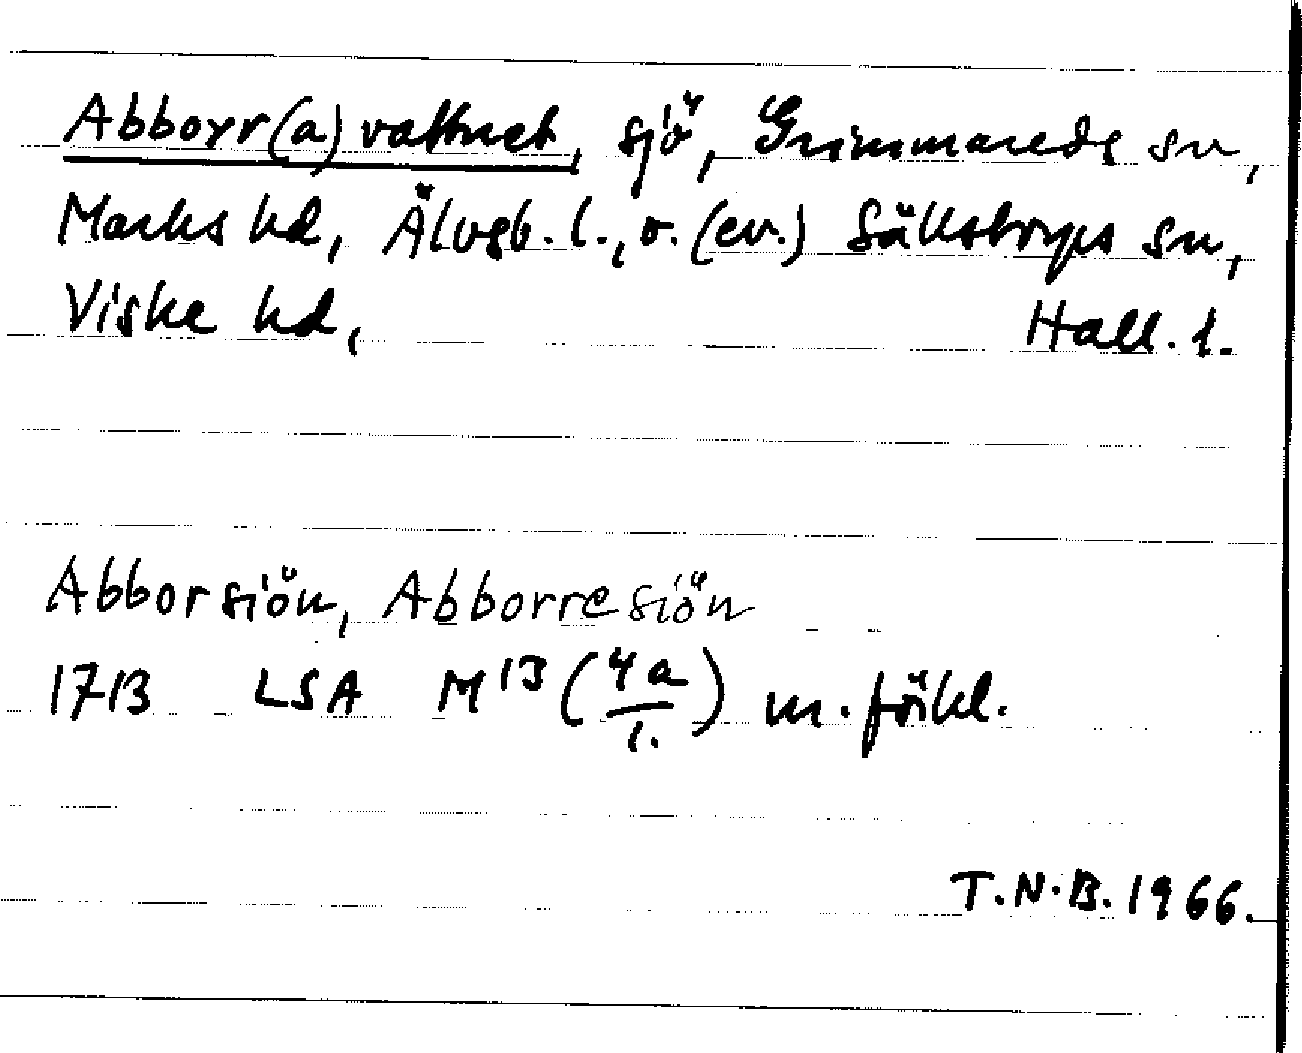 Abborr(a)vattnet, sjö, Grimmareds sn,
Marks hd, Älvsb. l., o. (ev.) Sällstorps sn,
Viske hd, Hall. l.
Abborsiön, Abborresiön
1713 LSA M13 (4a/1.) m. förkl.
T.N.B. 1966.